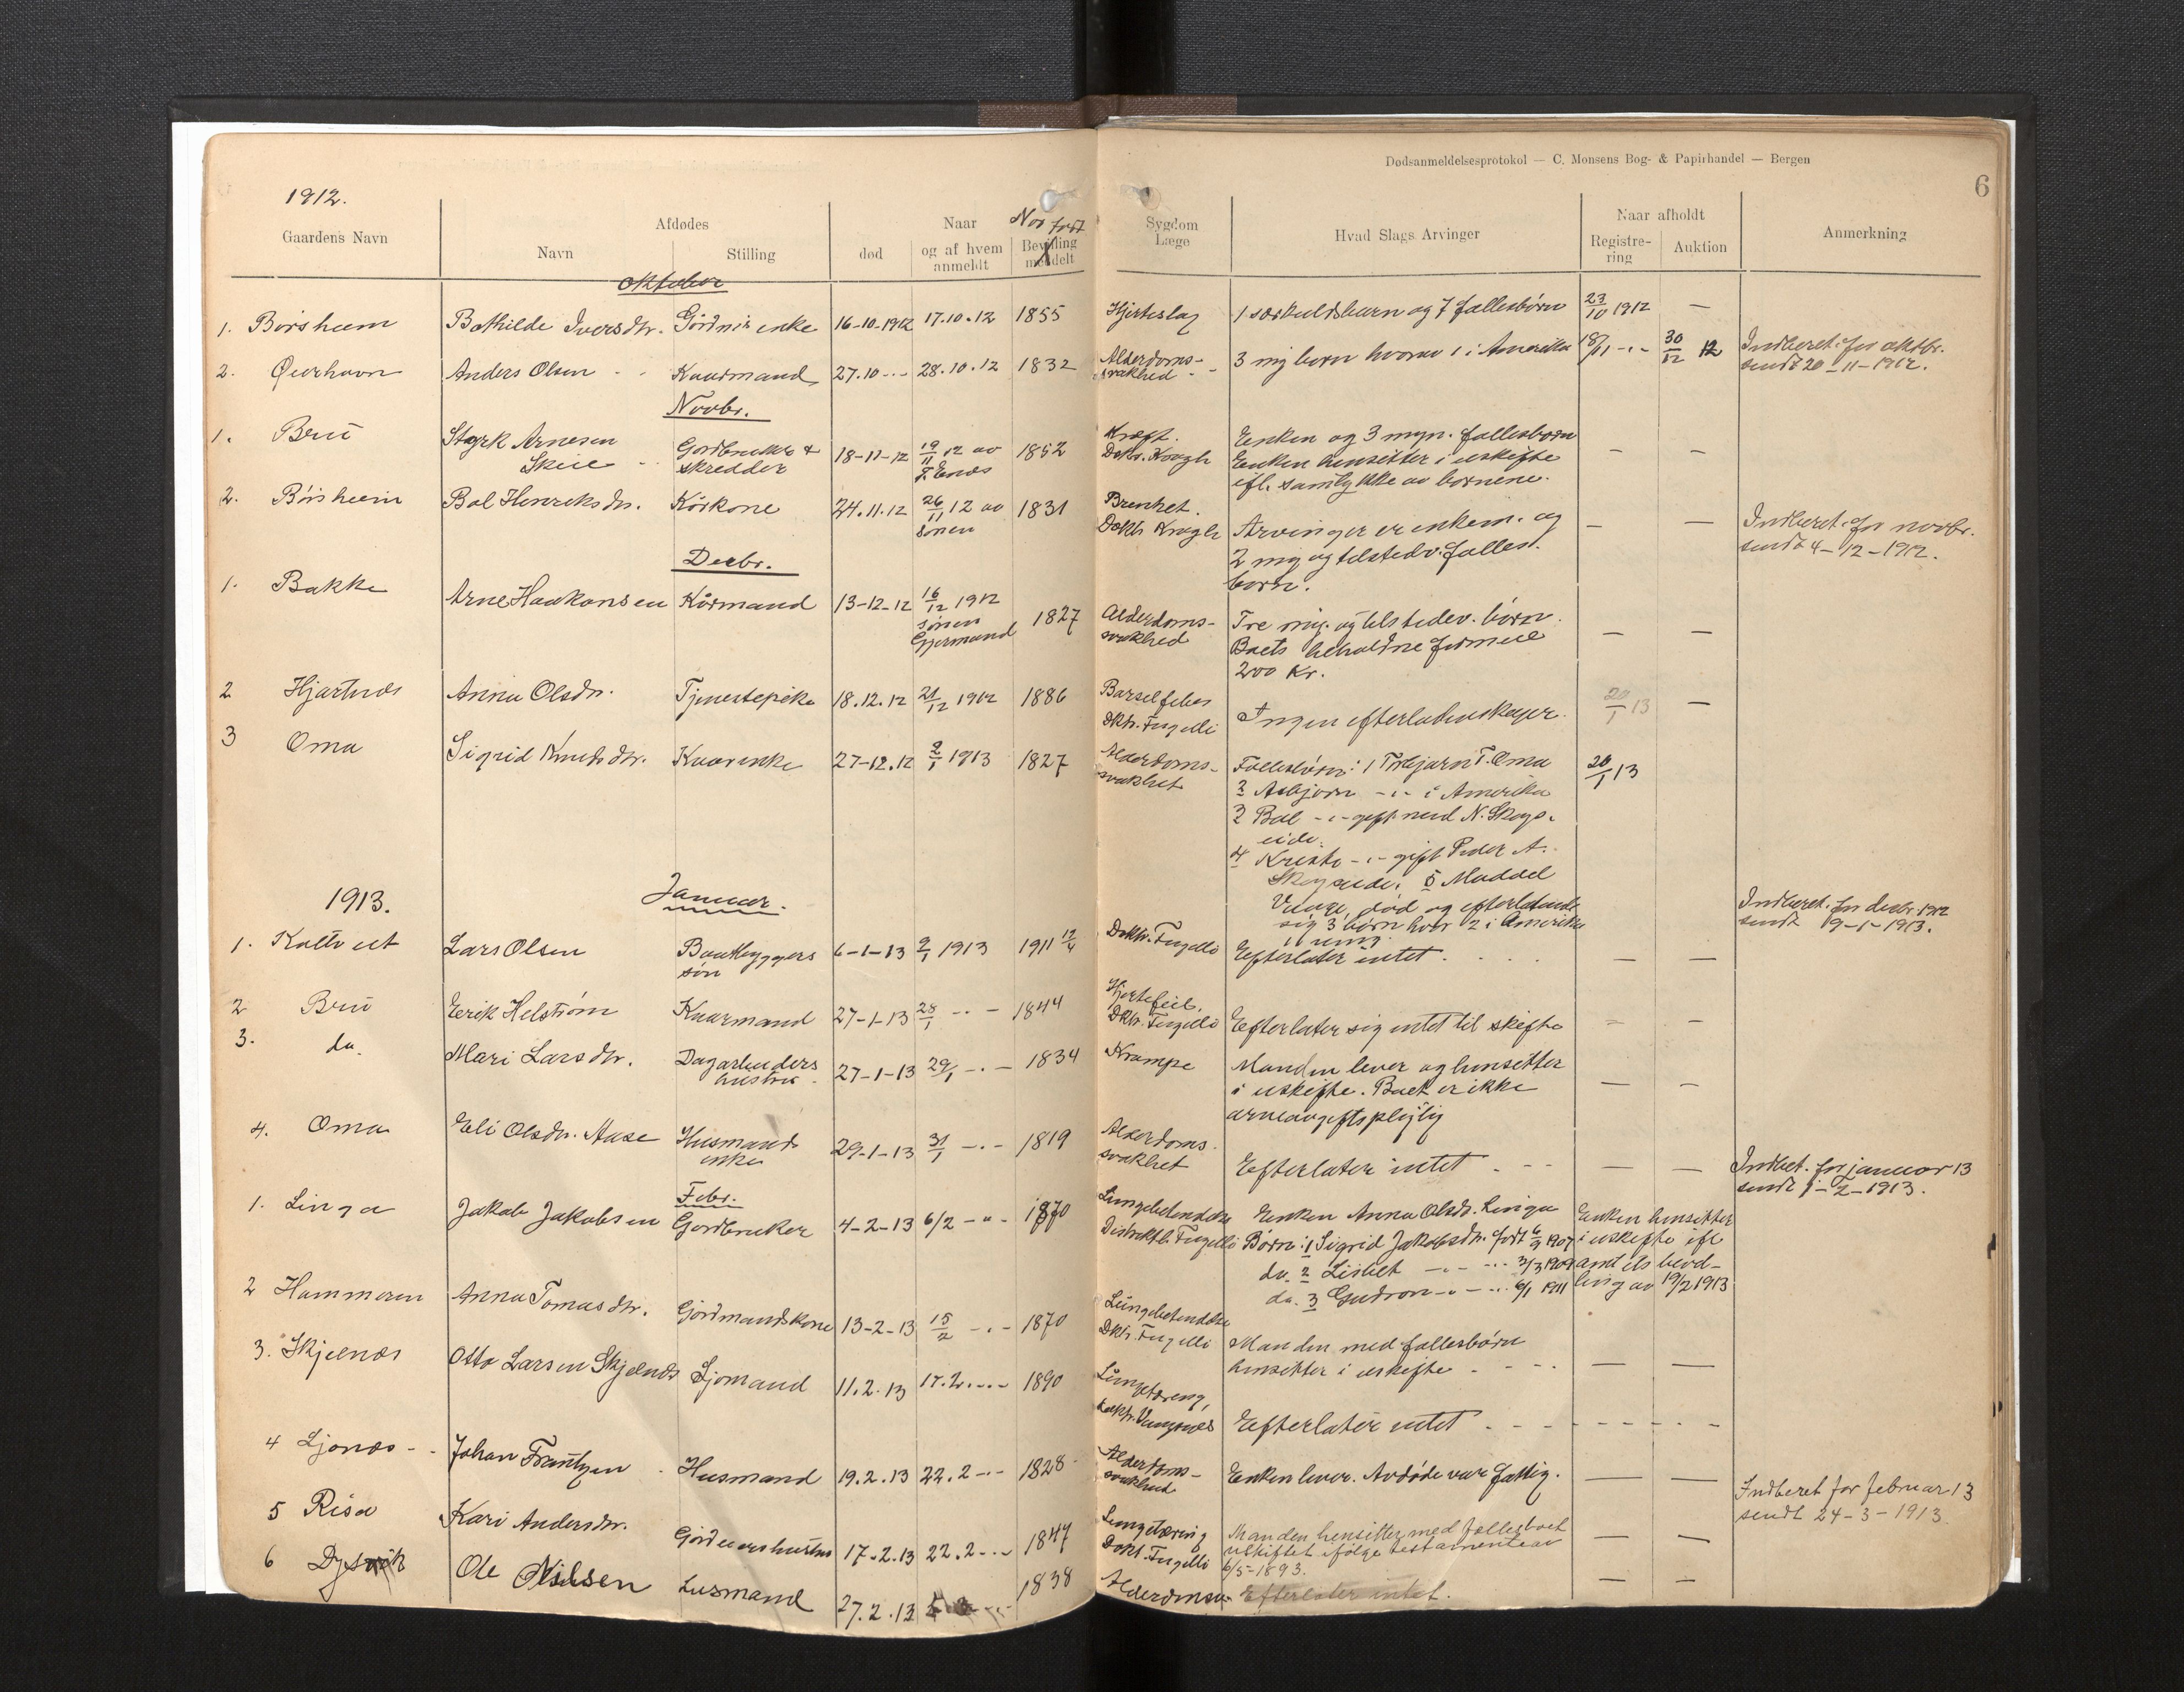 Dødsanmeldelsesprotokol — C. Monsens Bog- & Papirhandel — Bergen
6
1912.
Gaardens Navn
Afdødes
Navn
Stilling
død
Naar
og af hvem
anmeldt
Naar født
Bevilling
meddelt
Sygdom
Læge
Hvad Slags Arvinger
Naar afholdt
Registre-
ring
Auktion
Anmerkning
Oktober
1. Børsheim Bothilde Iversdtr. enke 16-10-1912 17.10.12 1855 Hjerteslag 1 særkuldsbarn og 7 fællesbørn 23/10 1912 —
2. Anders Olsen - - Kaarmand 27.10 -"- 28.10.12 1832 Alderdoms-
svakhed - - 3 myg børn hvorav 1 i Amerika 18/11 -"- 30/12 12 Indberet. for oktbr.
sendt 20-11-1912.
Novbr.
1. Bru Styrk Arnesen
Skeie - - Gårdbruker &
skredder 18-11-12 19/11 12 av
1852 Kræft.
Doktr. Kragh Enken og 3 myn. fællesbørn
Enken hensitter i uskifte
ifl. samtykke av børnene. — —
2. Børsheim Bol Henriksdtr. Kårkone 24.11.12 26/11 12 av
sønen 1831
Doktr Kragh Arvinger er enkem. og
2 myg og tilstedv. fælles.
børn. — — Indberet. for novbr.
sendt 4-12-1912.
Decbr.
1. Bakke Arne Haakonsen Kårmand 13-12-12 16/12 1912
sønen
Gjermund 1827 Alderdoms-
svakhed Tre myg. og tilstedev. børn.
Boets beholdne formue
200 Kr. — —
2 Hjartnes Anna Olsdtr. Tjenestepike 18.12.12 21/12 1912 1886 Barselfeber
Dktr. Fugelli Ingen efterladenskaper. 20/1 13 —
3 Oma Sigrid Knutsdtr. Kaarenke 27-12.12 2/1 1913 1827 Alderdoms-
svakhet Fællesbørn: 1 Torbjørn T. Oma 20/1 13
2 Asbjørn -"- i Amerika
3 Bol -"- gift med N. Skogs-
eide.
4 Kristi -"- gift Peder A.
Skogseide. 5
død og efterlatende
sig 3 børn hvor 2 i Amerika
1913.
Januar.
Indberet. for decbr. 1912
sendt 9-1-1913.
1. Koltveit Lars Olsen Baatbyggers
søn 6-1-13 9/1 1913 1911 12/4 Doktr. Fugelli Efterlater intet. — —
2 Bru Eerik Helstrøm Kaarmand 27-1-13 28/1 -"- 1844 Hjertefeil.
Dktr. Fugelli Efterlater sig intet til skifte — —
3. do. Mari Larsdtr. Dagarbeiders
hustru 27-1-13 29/1 -"- 1834 Krampe Manden lever og hensitter
i uskifte. Boet er ikke
arveavgiftspligtig — —
4. Oma Eli Olsdtr. Aase Husmands
enke 29-1-13 31/1 -"- 1819 Alderdoms-
svakhet Efterlater intet - - - — — Indbet. for januar 13
sendt 1-2-1913.
Febr.
1. Linga Jakob Jakobsen Gårdbruker 4-2-13 6/2 -"- 1870 Lungebetendelse
Distriktl. Fugelli Enken Anna Olsdtr. Linga
Børn: 1 Sigrid Jakobsdtr. født 6/9 1907
do. 2 Lisbet -"- -"- 3/3 1909
do. 3 Gudron -"- -"- 6/1 1911
Enken hensitter
i uskifte ifl
amtets bevil-
ling av 19/2 1913
2 Hammeren Anna Tomasdtr. Gårdmandskone 13-2-13 15/2 -"- 1870 Lungebetendelse
Dktr. Fugelli Manden med fællesbørn
hensitter i uskifte - - - — —
3. Skjelnes Otto Larsen Skjelnes Sjømand 11.2.13 17.2. -"- 1890 Lungetæring,
Efterlater intet - - - -
4 Ljonæs - - Johan Frantzen - Husmand 19.2.13 22.2 -"- 1828 Alderdoms-
svakhed Enken lever. Avdøde var fattig. — — Indberet for februar 13
sendt 24-3-1913.
5 Risa Kari Andersdtr. 17.2.13 22.2 -"- 1847 Lungetæring
Dokt. Fugelli Manden hensitter med fællesboet
uskiftet ifølge testamente av
6/5-1893. — —
6 Dysvik Ole Nilsen Lusmand 27.2.13 1838 Efterlater intet. — —